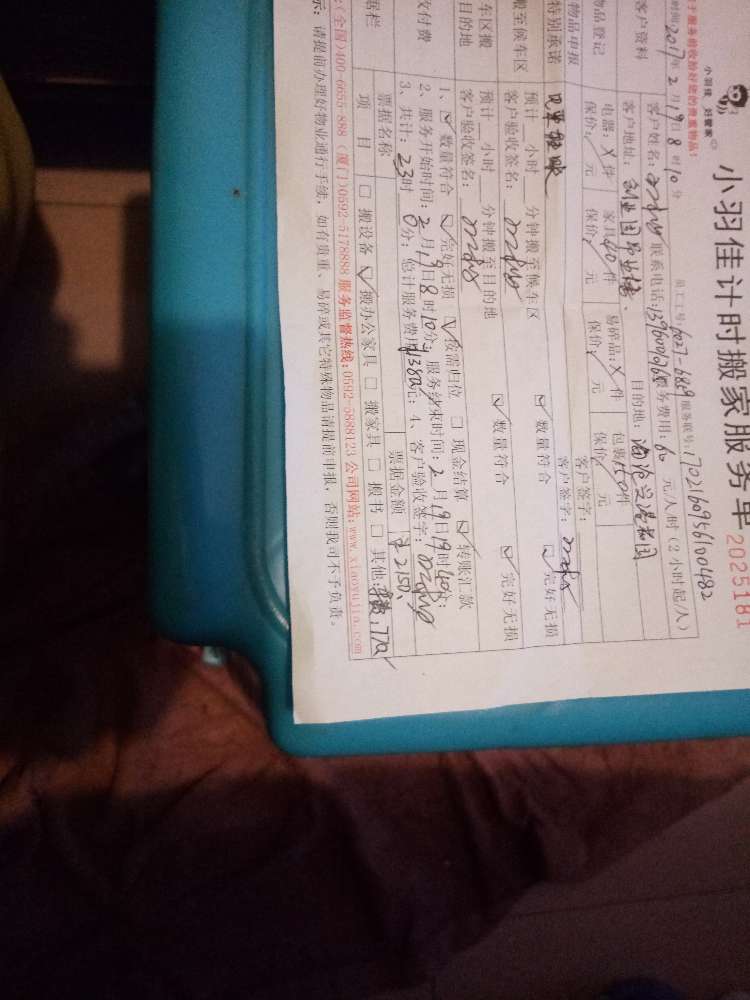 小羽佳 好管家
小羽佳计时搬家服务单 2025181
2017年2月19日8时10分 员工工号:6027-6869 服务联号:1702160956100482
客户资料
客户姓名: 联系电话: 服务费用:60元/人时(2小时起/人)
客户地址: 目的地:
物品登记
电器:X件 家具40件 易碎品:X件 包裹150件
保价:/元 保价:/元 保价:/元 保价:/元
物品申报 客户签字:
特别承诺 客户签字:
搬至候车区
预计__小时__分钟搬至候车区 ☑数量符合 ☑完好无损
客户验收签名:
车区搬
目的地
预计__小时__分钟搬至目的地 ☑数量符合 ☑完好无损
客户验收签名:
收付费
1、☑数量符合 ☑完好无损 ☑按需归位 ☐现金结算 ☑转账汇款
2、服务开始时间:2月19日8时10分;服务结束时间:2月19日19时40分;
3、共计:23时0分;总计服务费用¥1380元;4、客户验收签字:
据栏
票据名称 票据金额 ¥2150.
项目 ☐搬设备 ☑搬办公家具 ☐搬家具 ☐搬书 ☐其他:车费,770
(全国)400-6655-888 (厦门)0592-5178888 服务监督热线:0592-5888123 公司网站:www.xiaoyujia.com
示:请提前办理好物业通行手续,如有贵重、易碎或其它特殊物品请提前申报,否则我司不予负责。